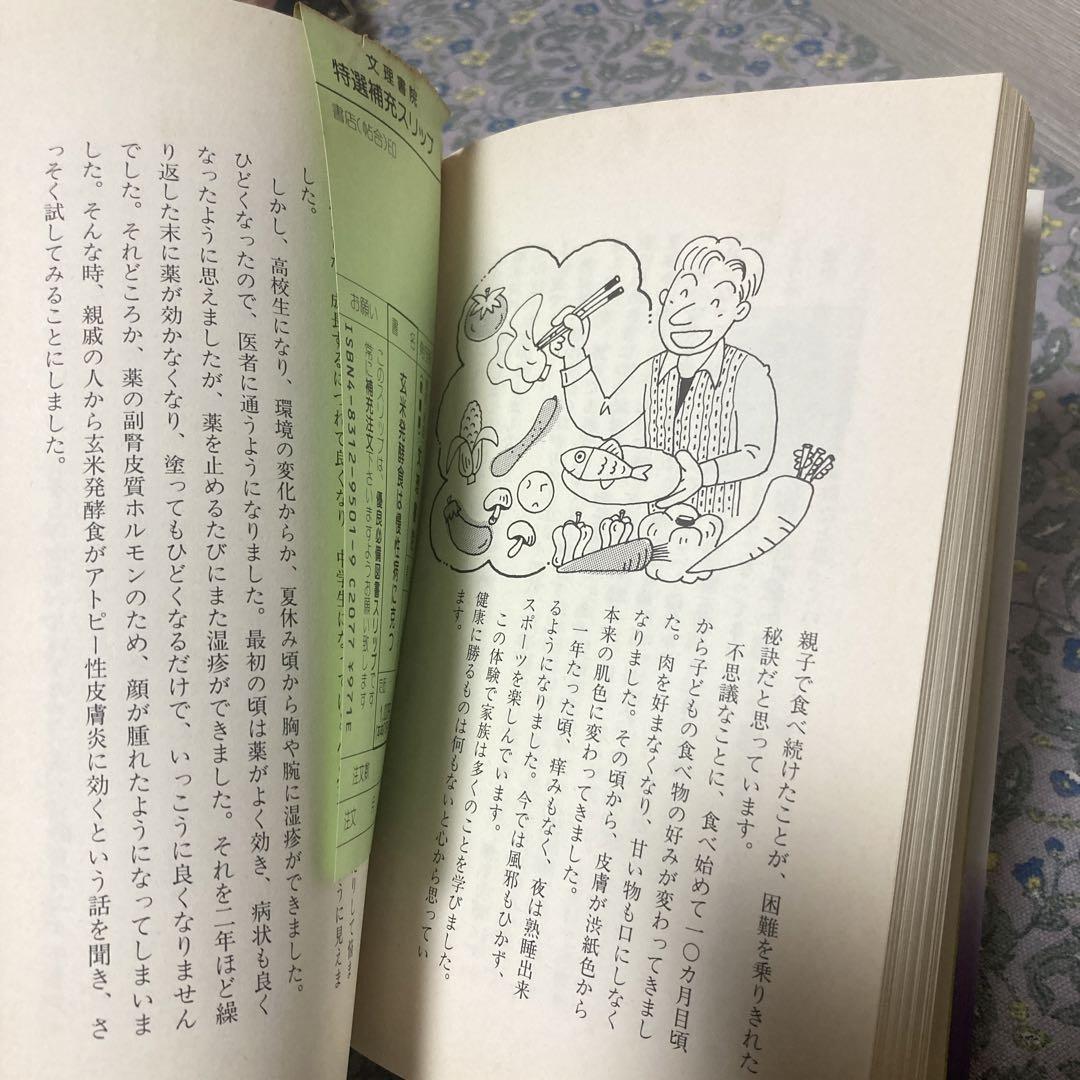 親子で食べ続けたことが、困難を乗りきれた
秘訣だと思っています。
不思議なことに、食べ始めて一〇カ月目頃
から子どもの食べ物の好みが変わってきまし
た。肉を好まなくなり、甘い物も口にしなく
なりました。その頃から、皮膚が渋紙色から
本来の肌色に変わってきました。
一年たった頃、痒みもなく、夜は熟睡出来
るようになりました。今では風邪もひかず、
スポーツを楽しんでいます。
この体験で家族は多くのことを学びました。
健康に勝るものは何もないと心から思ってい
ます。
文理書院
特選補充スリップ
書店(帖合)印
書名
玄米発酵食は慢性病に克つ
お願い
このスリップは、優良必備図書スリップです
常に補充注文下さいますようお願い致します
ISBN4-8312-9501-9 C2077 ¥971E
注文数
注文
成長するにつれて良くなり
中学生に
うに見えま
した。
しかし、高校生になり、環境の変化からか、夏休み頃から胸や腕に湿疹ができました。
ひどくなったので、医者に通うようになりました。最初の頃は薬がよく効き、病状も良く
なったように思えましたが、薬を止めるたびにまた湿疹ができました。それを二年ほど繰
り返した末に薬が効かなくなり、塗ってもひどくなるだけで、いっこうに良くなりません
でした。それどころか、薬の副腎皮質ホルモンのため、顔が腫れたようになってしまいま
した。そんな時、親戚の人から玄米発酵食がアトピー性皮膚炎に効くという話を聞き、さ
っそく試してみることにしました。